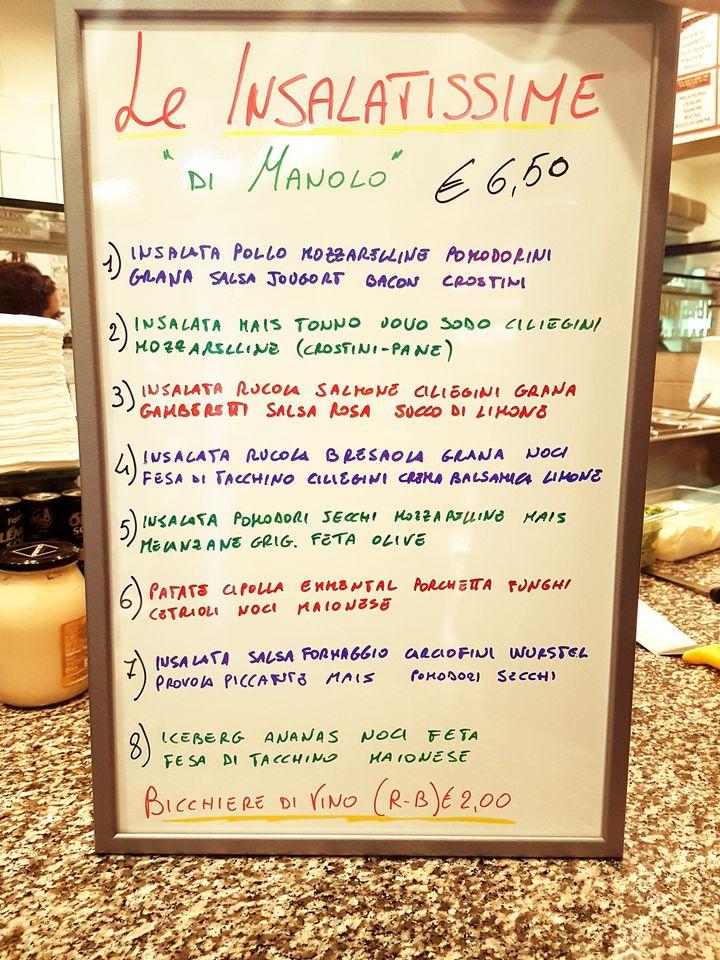 Le INSALATISSIME
"DI MANOLO" € 6,50
1) INSALATA POLLO MOZZARELLINE POMODORINI
GRANA SALSA JOUGORT BACON CROSTINI
2) INSALATA MAIS TONNO UOVO SODO CILIEGINI
MOZZARELLINE (CROSTINI-PANE)
3) INSALATA RUCOLA SALMONE CILIEGINI GRANA
GAMBERETTI SALSA ROSA SUCCO DI LIMONE
4) INSALATA RUCOLA BRESAOLA GRANA NOCI
FESA DI TACCHINO CILIEGINI CREMA BALSAMICA LIMONE
5) INSALATA POMODORI SECCHI MOZZARELLINE MAIS
MELANZANE GRIG. FETA OLIVE
6) PATATE CIPOLLA EMMENTAL PORCHETTA FUNGHI
CETRIOLI NOCI MAIONESE
7) INSALATA SALSA FORMAGGIO CARCIOFINI WURSTEL
PROVOLA PICCANTE MAIS POMODORI SECCHI
8) ICEBERG ANANAS NOCI FETA
FESA DI TACCHINO MAIONESE
BICCHIERE DI VINO (R-B) € 2,00